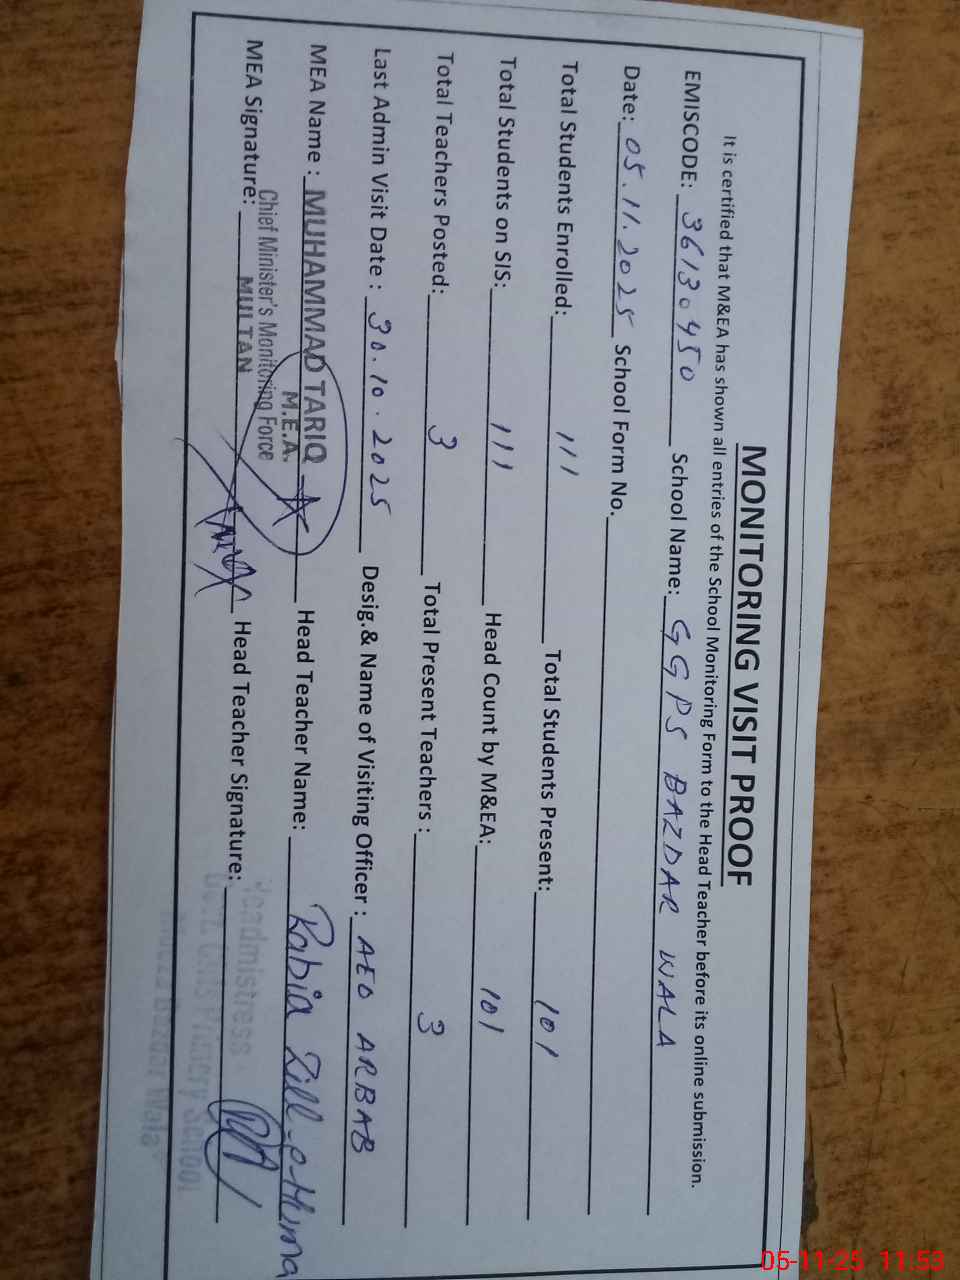 MONITORING VISIT PROOF
It is certified that M&EA has shown all entries of the School Monitoring Form to the Head Teacher before its online submission.
EMISCODE: 36130450 School Name: GGPS BAZDAR WALA
Date: 05.11.2025 School Form No.
Total Students Enrolled: 111 Total Students Present: 101
Total Students on SIS: 111 Head Count by M&EA: 101
Total Teachers Posted: 3 Total Present Teachers : 3
Last Admin Visit Date : 30.10.2025 Desig.& Name of Visiting Officer : AEO ARBAB
MEA Name : MUHAMMAD TARIQ Head Teacher Name: Rabia Zill-e-Huma
M.E.A.
Chief Minister's Monitoring Force
MEA Signature: MULTAN Head Teacher Signature:
Headmistress
Govt. Girls Primery School
Bazdar Wala
05-11-25 11:53